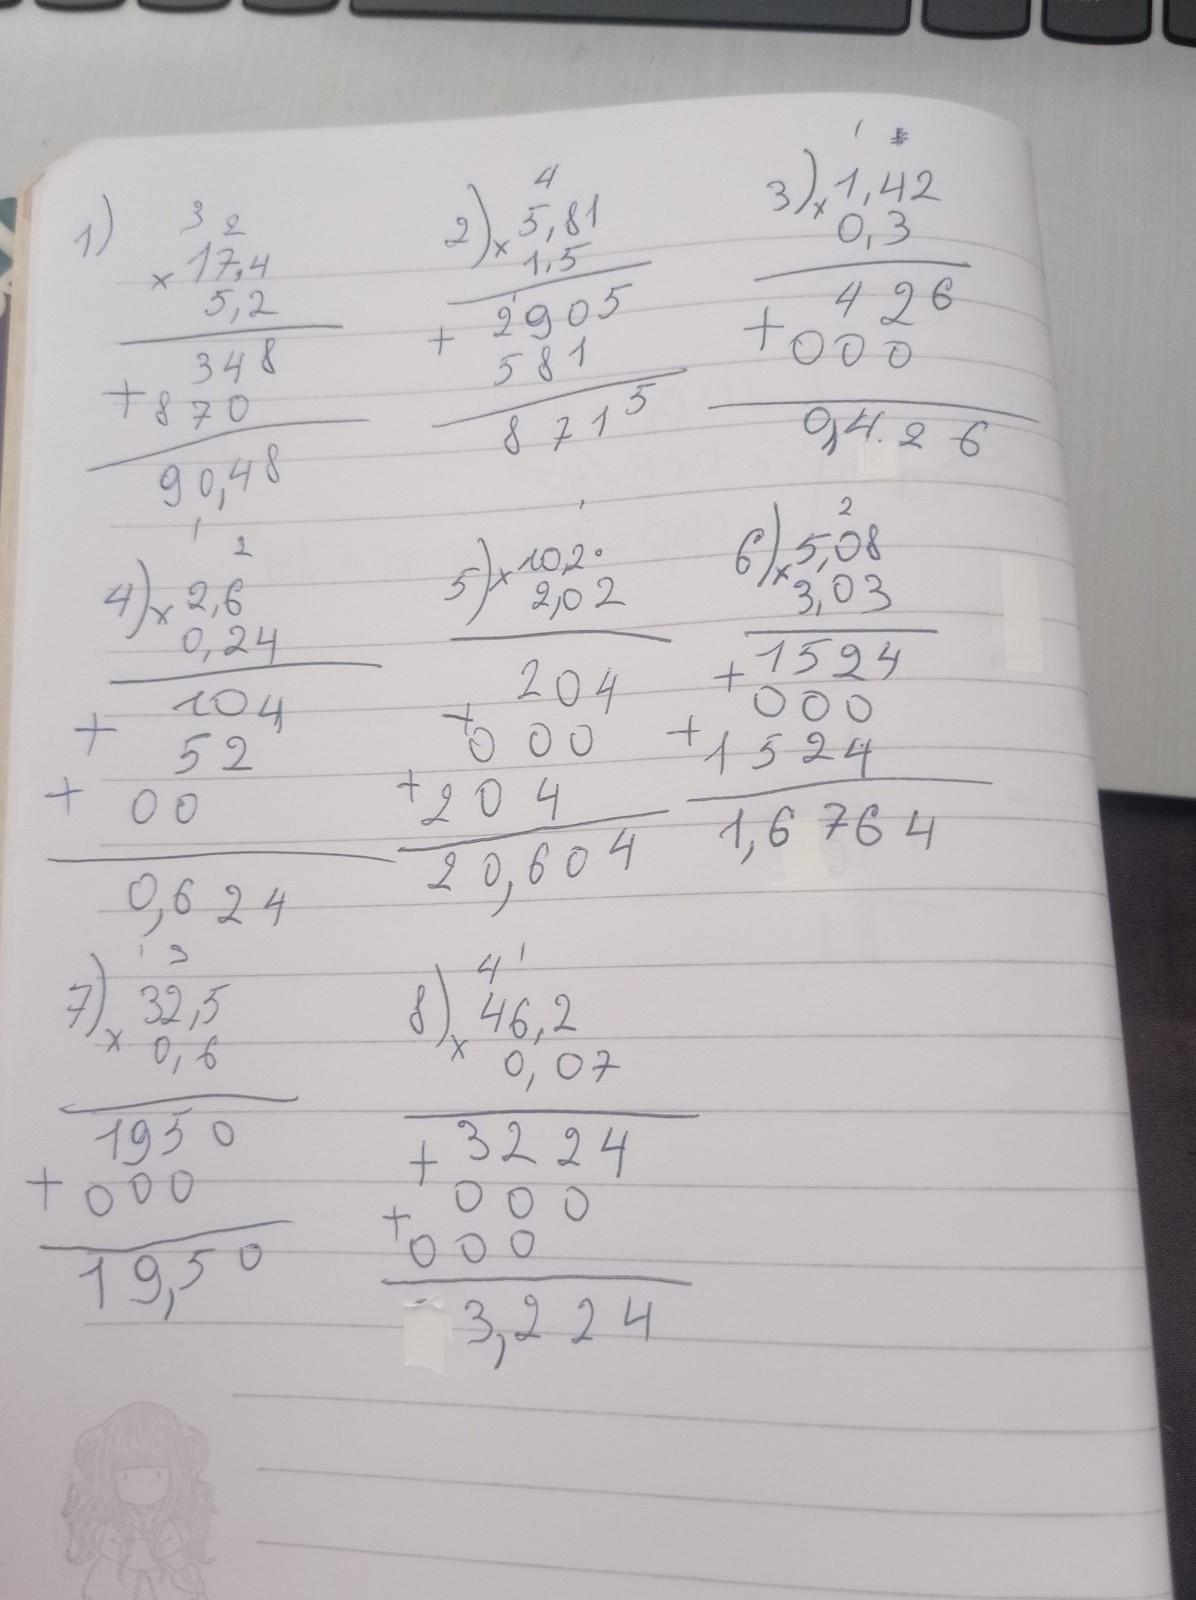 1)
3 2
× 17,4
5,2
348
+ 870
90,48
2)
4
× 5,81
1,5
1
2905
+ 581
8715
3)
1
× 1,42
0,3
426
+ 000
0,426
1
4)
2
× 2,6
0,24
104
+ 52
+ 00
0,624
5)
1
× 10,2
2,02
204
+ 000
+ 204
20,604
6)
2
× 5,08
3,03
1524
+ 000
+ 1524
1,6764
7)
1 3
× 32,5
0,6
1950
+ 000
19,50
8)
4 1
× 46,2
0,07
3224
+ 000
+ 000
3,224